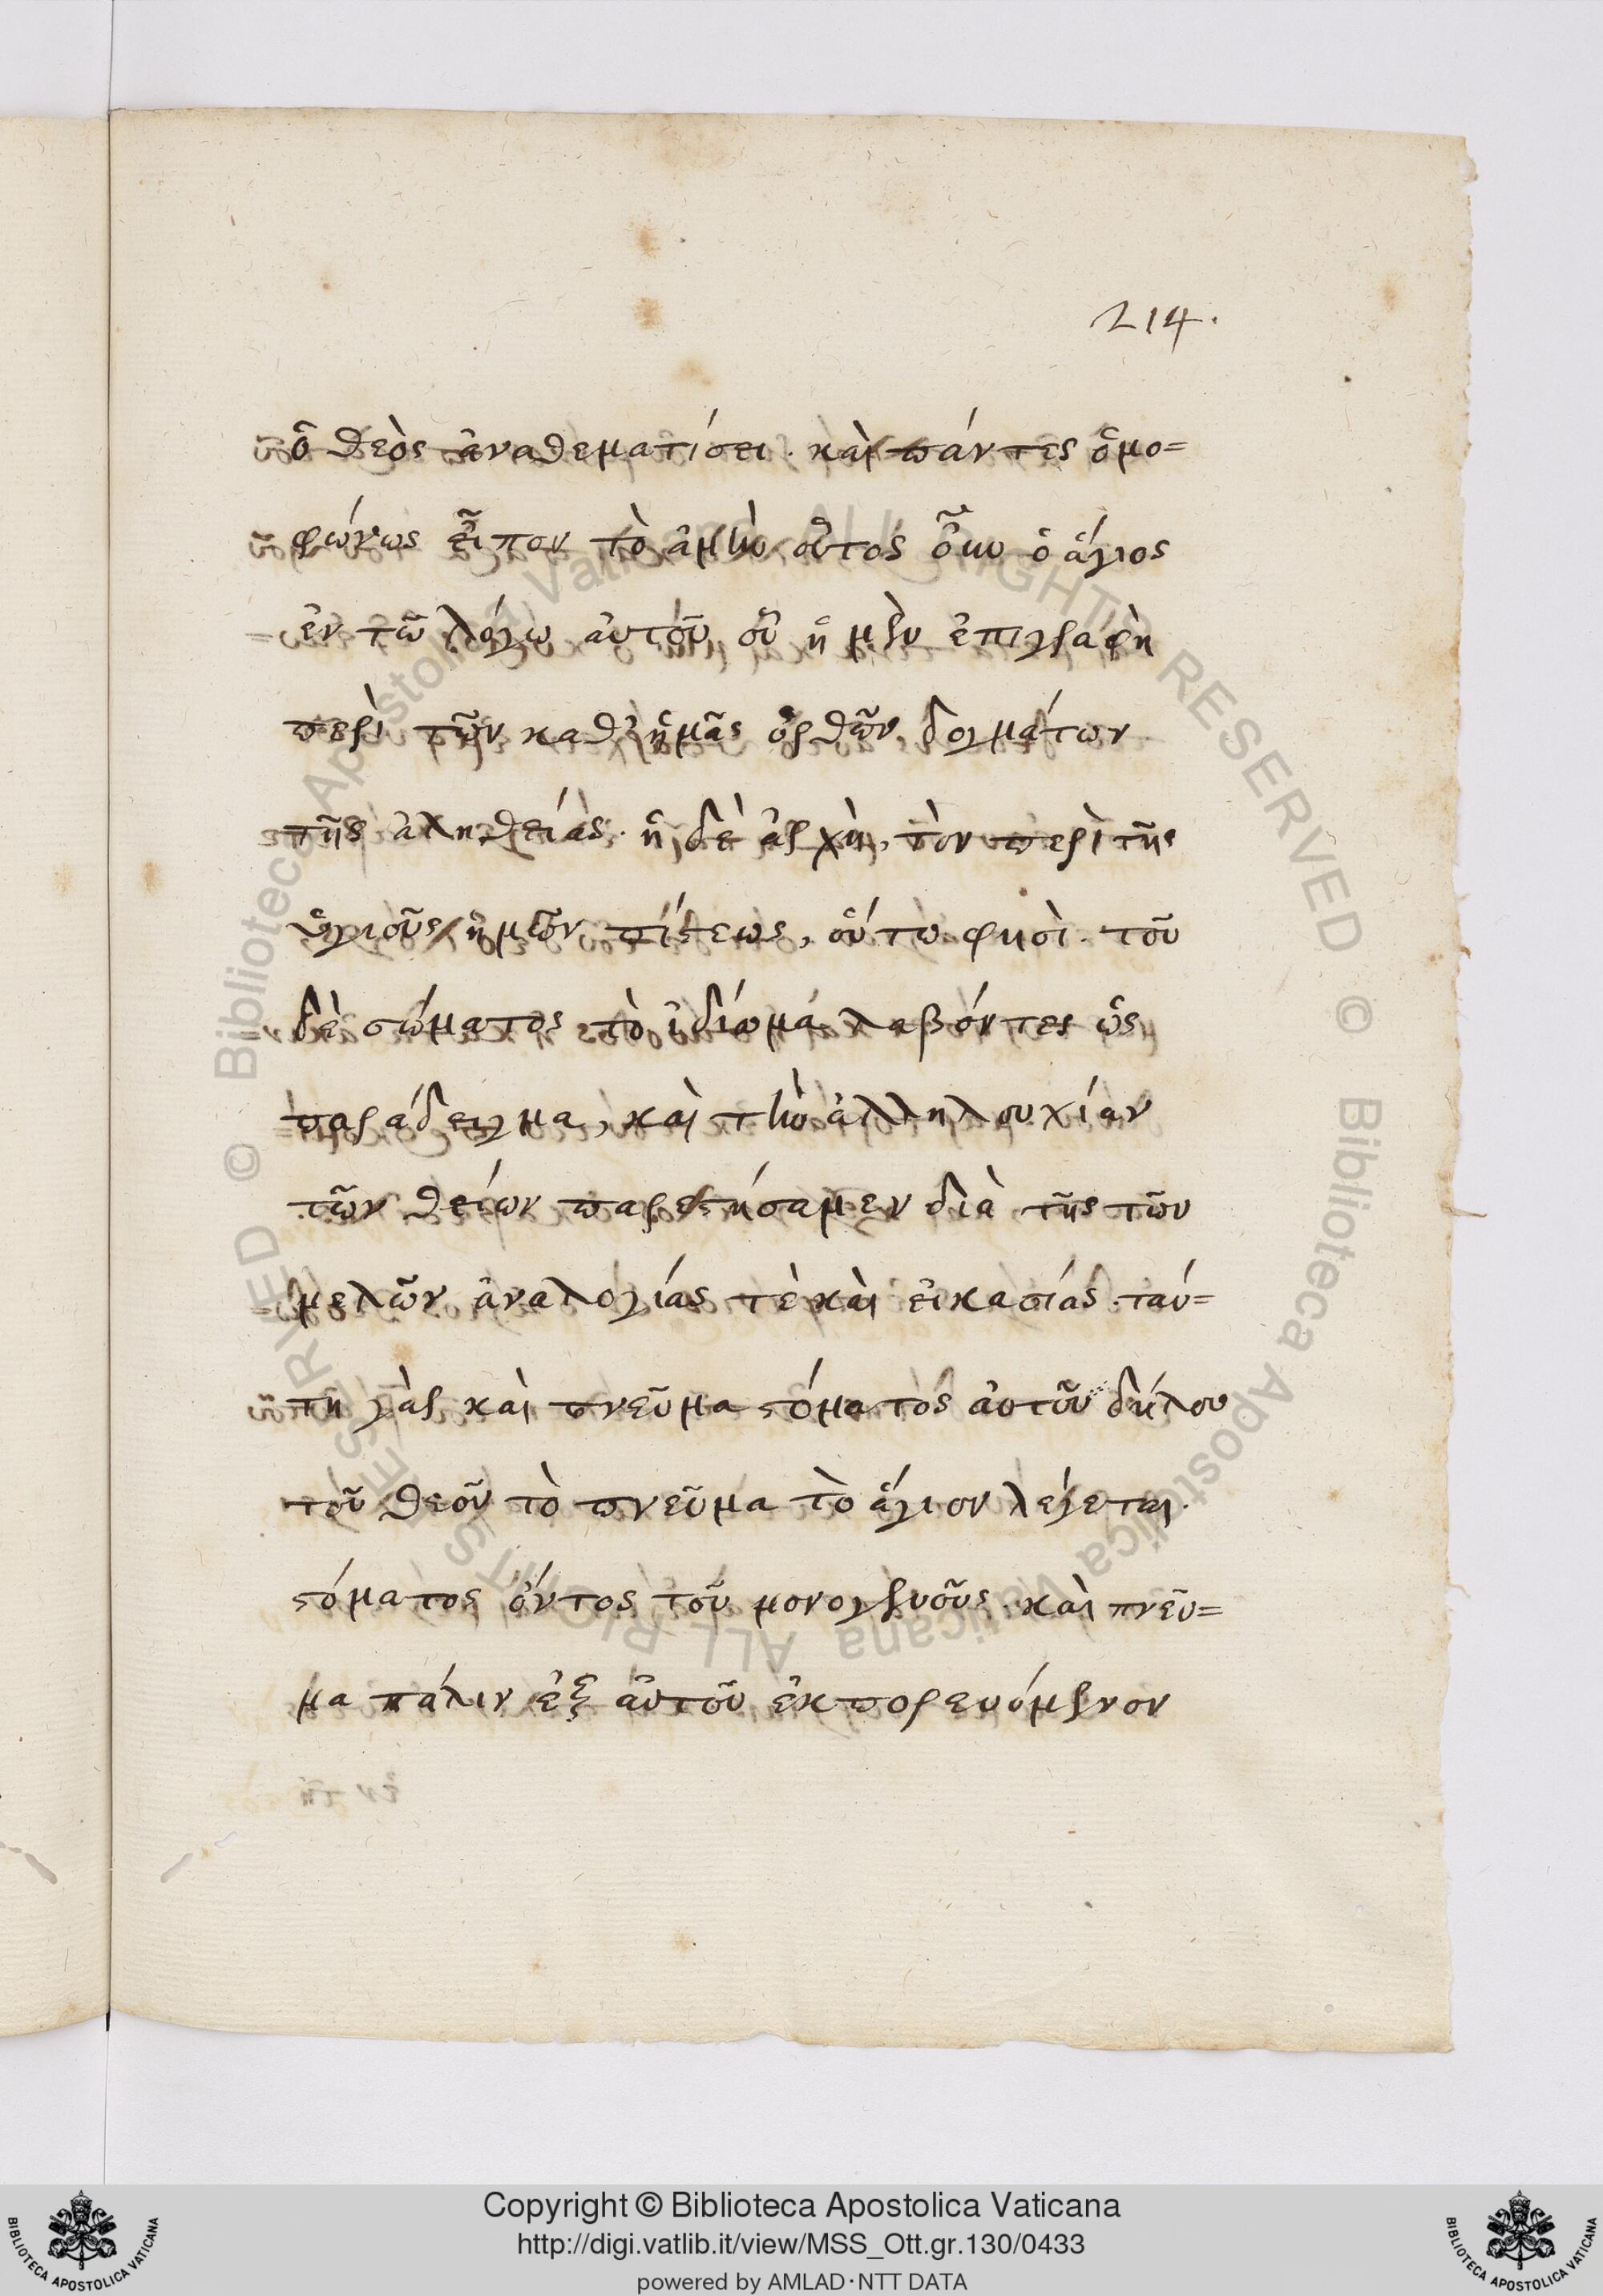 214.
ὁ θεὸς ἀναθεματίσει. καὶ πάντες ὁμο=
φώνως εἶπον τὸ ἀμὴν οὗτος οὖν ὁ ἅγιος
ἐν τῶ λόγω αὐτοῦ, οὗ ἡ μὲν ἐπιγραφὴ
περὶ τῶν καθ' ἡμᾶς ὀρθῶν δογμάτων
τῆς ἀληθείας. ἡ δὲ ἀρχὴ, τὸν περὶ τῆς
ὑγιοῦς ἡμῶν πίστεως, οὕτω φησὶ. τοῦ
δὲ σώματος τὸ ἰδίωμα λαβόντες ὡς
παράδειγμα, καὶ τὴν ἀλληλουχίαν
τῶν θείων παρεστήσαμεν διὰ τῆς τῶν
μελῶν ἀναλογίας τὲ καὶ εἰκασίας. ταύ=
τη γὰρ καὶ πνεῦμα στόματος αὐτοῦ δήλου
τοῦ θεοῦ τὸ πνεῦμα τὸ ἅγιον λέγεται.
στόματος ὄντος τοῦ μονογενοῦς. καὶ πνεῦ=
μα πάλιν ἐξ αὐτοῦ ἐκπορευόμενον
Copyright © Biblioteca Apostolica Vaticana
http://digi.vatlib.it/view/MSS_Ott.gr.130/0433
powered by AMLAD·NTT DATA
BIBLIOTECA APOSTOLICA VATICANA
BIBLIOTECA APOSTOLICA VATICANA
© Biblioteca Apostolica Vaticana ALL RIGHTS RESERVED © Biblioteca Apostolica Vaticana ALL RIGHTS RESERVED